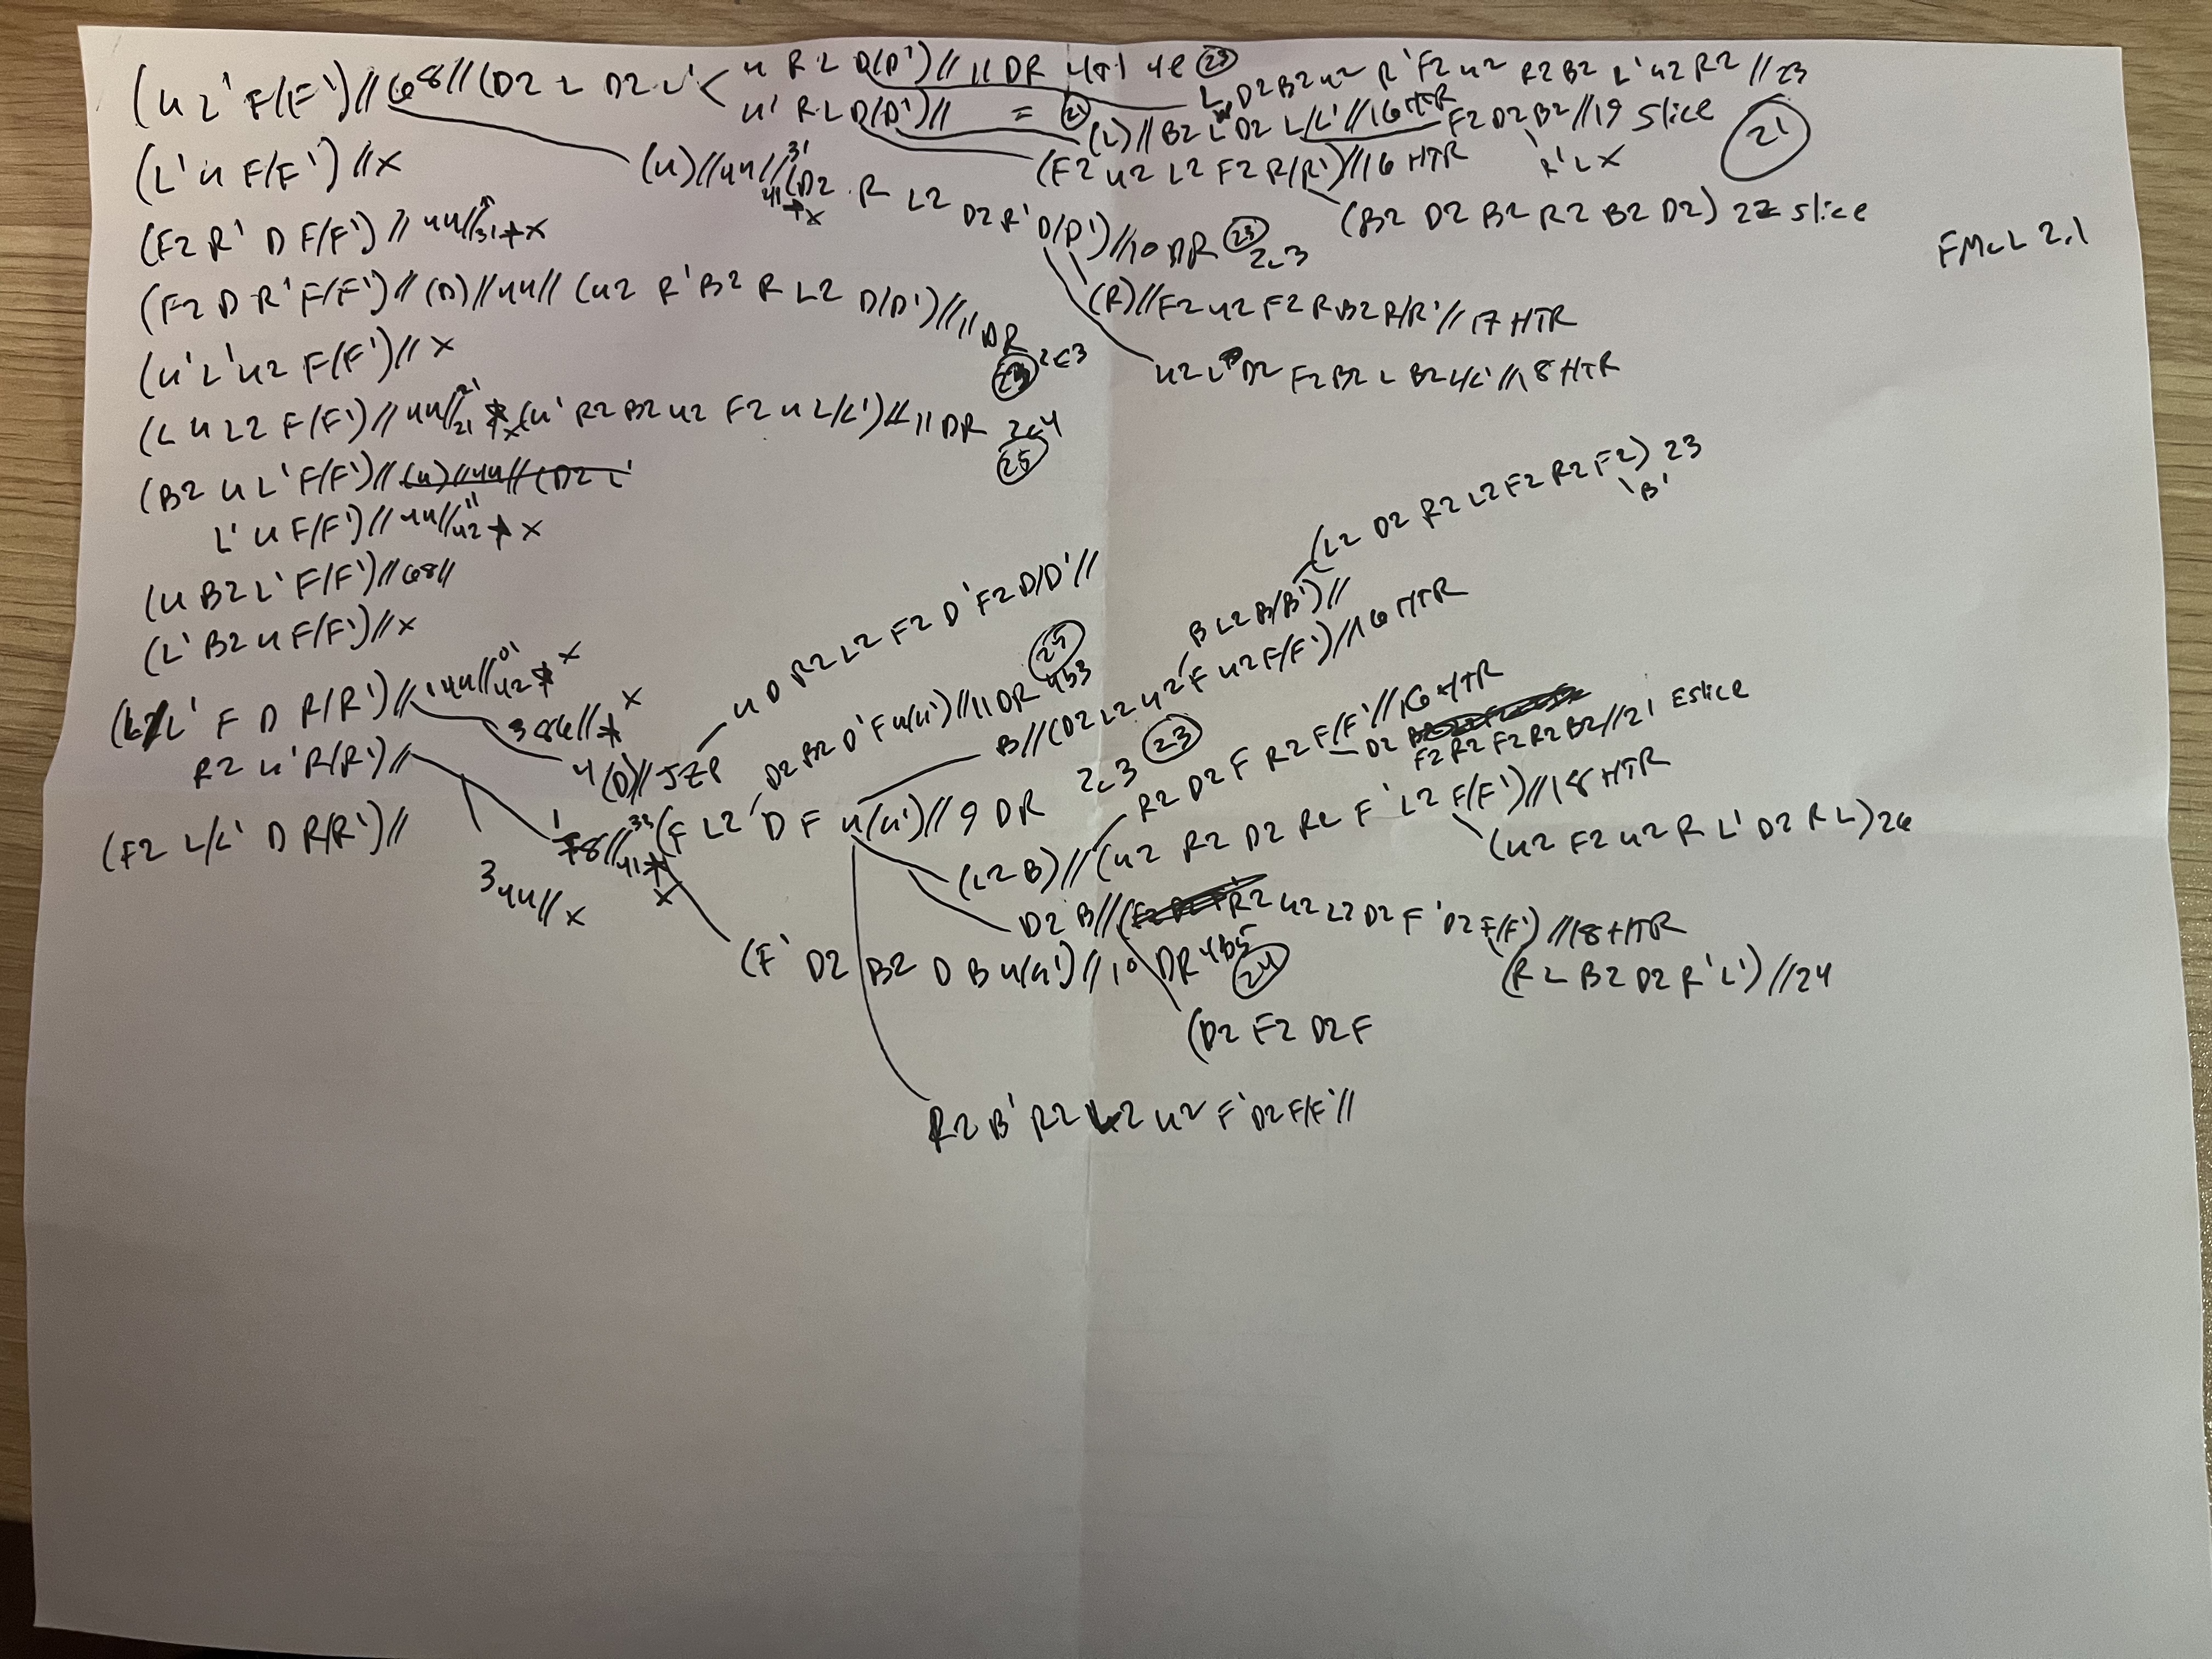 (U L' F/(F') // 68 // (D2 L D2 L' < U R L D(D') // 11 DR 4e 23
L D2 B2 U2 R' F2 U2 R2 B2 L' U2 R2 // 23
U' R L D(D') // = 21
(L) // B2 L D2 L/L' // 16 HTR F2 D2 B2 // 19 slice
21
(L' U F/F') // X
(U) // 44 // 31 (D2 R L2 D2 R' D/D') // 10 DR 23 2c3
41 X
(F2 U2 L2 F2 R/(R') // 16 HTR
R' L X
(B2 D2 B2 R2 B2 D2) 22 slice
FMCL 2.1
(F2 R' D F/F') // 44 // 31 X
(R) // F2 U2 F2 R B2 R/R' // 17 HTR
(F2 D R' F/F') // (D) // 44 // (U2 R' B2 R L2 D/D') // 11 DR 2c3
U2 L D2 F2 B2 L B2 L/L' // 18 HTR
(U' L' U2 F/F') // X
(L U L2 F/(F') // 44 // 21 X (U' R2 B2 U2 F2 U L/L') // 11 DR 2c4
25
(B2 U L' F/F') // (U) // 44 // (D2 L'
L' U F/F') // 44 // 42 X
(L2 D2 R2 L2 F2 R2 F2) 23
'B'
(U B2 L' F/F') // 68 //
(L' B2 U F/F') // X
U D R2 L2 F2 D' F2 D/D' //
B L2 B/B') //
(L' F D R/(R') // 44 // 42 X
386 // X
4 (D) // JZP
D2 B2 D' F U(U') // 11 DR 4b3
25
B // (D2 L2 U2 F U2 F/F') // 16 HTR
R2 U' R/(R') //
78 // 41 X
(F L2 D F U(U') // 9 DR 2c3 23
R2 D2 F R2 F/F' // 16 HTR
D2 F2 R2 F2 R2 B2 // 21 Eslice
(L2 B) // (U2 R2 D2 R2 F' L2 F/F') // 18 HTR
(U2 F2 U2 R L' D2 R L) 26
(F2 L/L' D R/R') //
344 // X
D2 B // (U2 L2 D2 F' D2 F/F') // 18 HTR
(R L B2 D2 R' L') // 24
(F' D2 B2 D B U(U') // 10 DR 4b5
24
(D2 F2 D2 F
R2 B' R2 L2 U2 F' D2 F/F' //